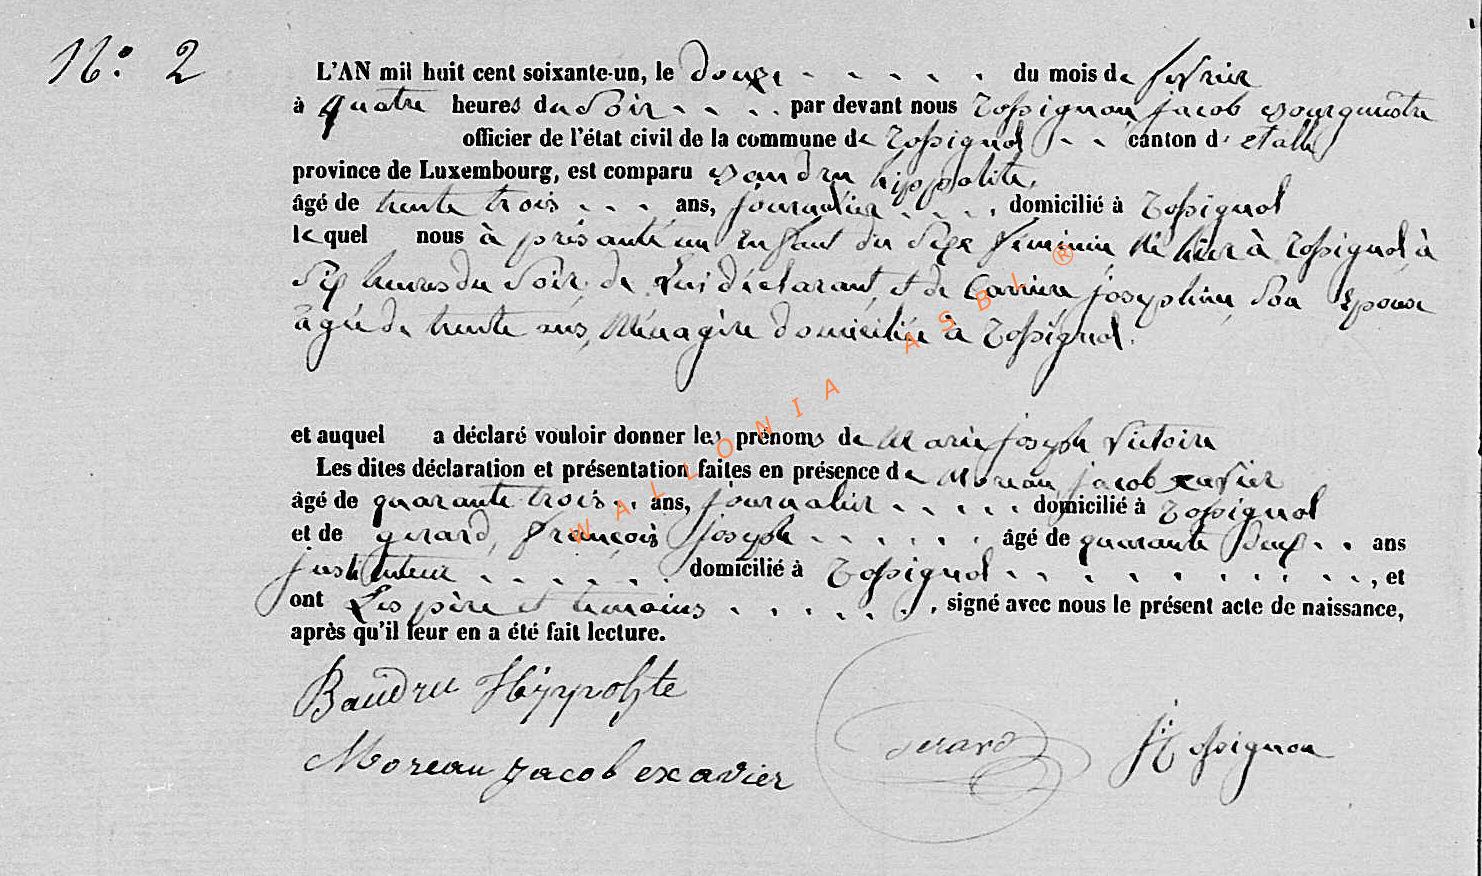 N°. 2
L'AN mil huit cent soixante-un, le douze - - - - - du mois de fevrier
à quatre heures du soir - - - - par devant nous Tossignon jacob Bourgmestre
officier de l'état civil de la commune de Tossignol - - canton d' etalle
province de Luxembourg, est comparu Baudru hippolite,
âgé de trente trois - - - - ans, journalier - - - - domicilié à Tossignol
lequel nous à présanté un Enfant du Sexe féminin Né hier à Tossignol à
Six heures du Soir, de Lui déclarant, et de Carrière josephine Son Epouse
âgée de trente ans, Ménagère domiciliée à Tossignol.
et auquel a déclaré vouloir donner les prénoms de Marie joseph Victoire
Les dites déclaration et présentation faites en présence de Moreau jacob exavier
âgé de quarante trois - - ans, journalier - - - - - domicilié à Tossignol
et de gerard, françois joseph - - - - - - âgé de quarante deux - - ans
justituteur - - - - - - domicilié à Tossignol - - - - - - - - - -, et
ont Les père et temoins - - - - - - , signé avec nous le présent acte de naissance,
après qu'il leur en a été fait lecture.
Baudru Hyppolyte
Moreau jacob exavier
Gerard
J Tossignon
WALLONIA ASBL ®